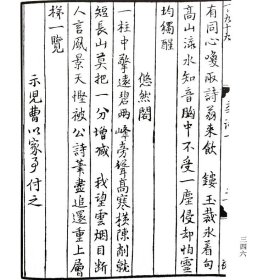 有同心喚取詩翁來飲　鏤玉裁冰著句
高山流水知音胸中不受一塵侵却怕靈
均獨醒
悠然閣
一柱中擎遠碧兩峰旁聳高寒橫陳削就
短長山莫把一分增減　我望雲烟目斷
人言風景天慳被公詩筆盡追還重上層
梯一覽
示兒曹以家事付之
三四六